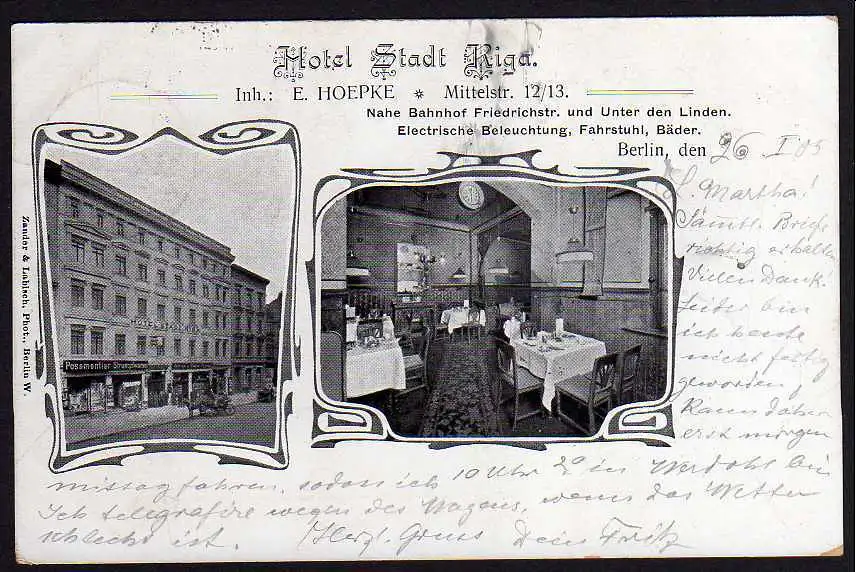 Hotel Stadt Riga.
Inh.: E. HOEPKE * Mittelstr. 12/13.
Nahe Bahnhof Friedrichstr. und Unter den Linden.
Electrische Beleuchtung, Fahrstuhl, Bäder.
Berlin, den 26. I 05
L. Martha!
Sämtl. Briefe
richtig erhalten
Vielen Dank!
Leider bin
ich heute
nicht fertig
geworden,
Kann daher
erst morgen
mittag fahren, sodass ich 10 Uhr 20 in Werdohl bin
Ich telegrafire wegen des Wagens, wenn das Wetter
schlecht ist. Herzl. Gruss Dein Fritz
Possmentier Strumpfwaren
Zander & Labisch, Phot., Berlin W.